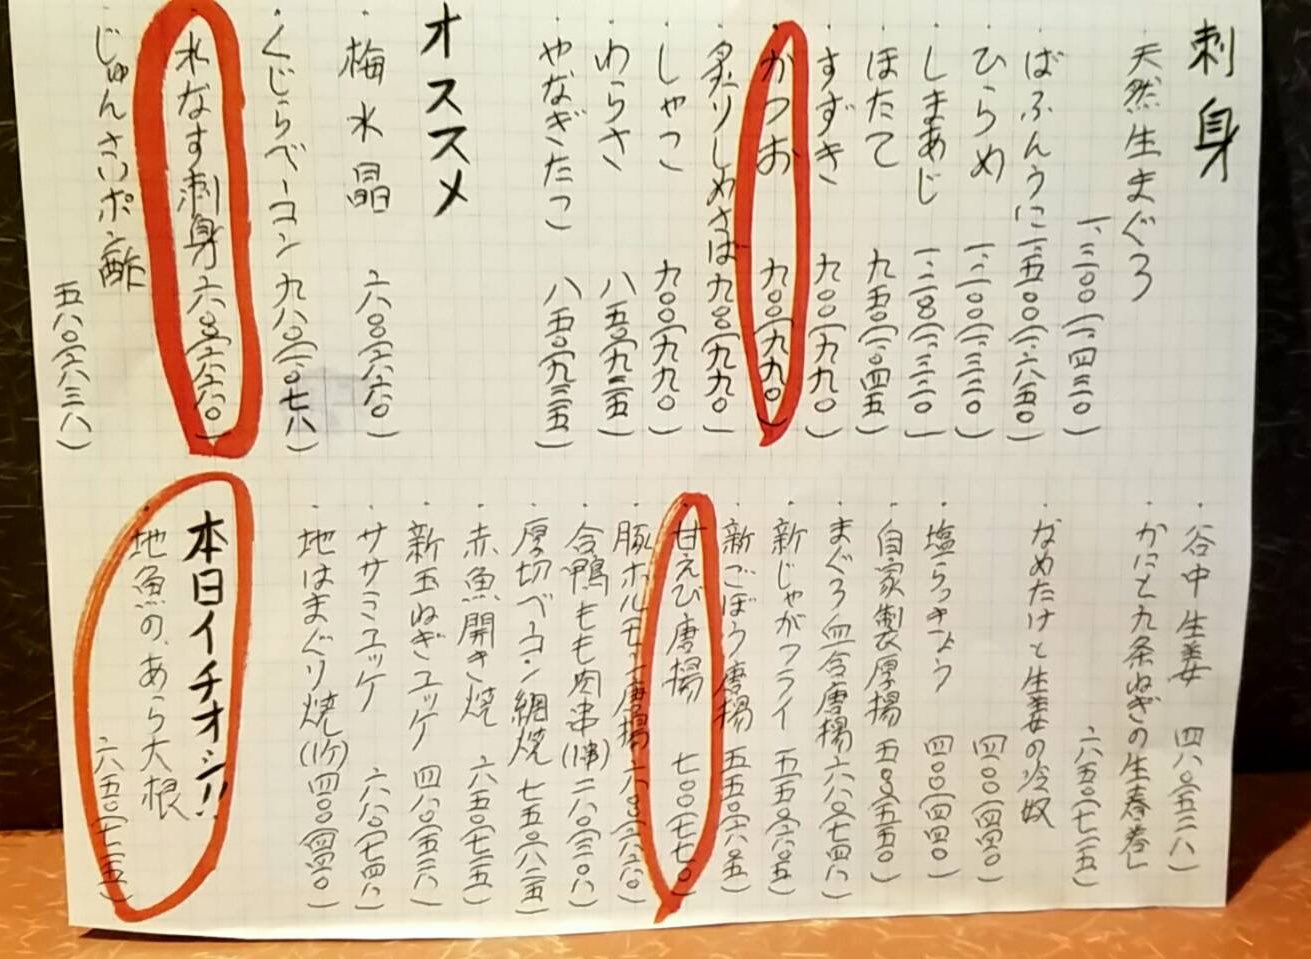 刺身
・天然生まぐろ
一、三〇〇(一、四三〇)
・ばふんうに 一、五〇〇(一、六五〇)
・ひらめ 一、二〇〇(一、三二〇)
・しまあじ 一、二〇〇(一、三二〇)
・ほたて 九五〇(一、〇四五)
・すずき 九〇〇(九九〇)
・かつお 九〇〇(九九〇)
・炙りしめさば 九〇〇(九九〇)
・しゃこ 九〇〇(九九〇)
・わらさ 八五〇(九三五)
・やなぎたこ 八五〇(九三五)
オススメ
・梅水晶 六〇〇(六六〇)
・くじらベーコン 九八〇(一、〇七八)
・水なす刺身 六〇〇(六六〇)
・じゅんさいポン酢
五八〇(六三八)
・谷中生姜 四八〇(五二八)
・かにと九条ねぎの生春巻し
六五〇(七一五)
・なめたけと生姜の冷奴
四〇〇(四四〇)
・塩らっきょう 四〇〇(四四〇)
・自家製厚揚 五〇〇(五五〇)
・まぐろ血合唐揚 六八〇(七四八)
・新じゃがフライ 五五〇(六〇五)
・新ごぼう唐揚 五五〇(六〇五)
・甘えび唐揚 七〇〇(七七〇)
・豚ホルモン唐揚 六〇〇(六六〇)
・合鴨もも肉串(1串) 二八〇(三〇八)
・厚切ベーコン網焼 七五〇(八二五)
・赤魚開き焼 六五〇(七一五)
・新玉ねぎユッケ 四八〇(五二八)
・ササミユッケ 六八〇(七四八)
・地はまぐり焼(1ケ) 四〇〇(四四〇)
本日イチオシ!!
・地魚の、あら大根
六五〇(七一五)